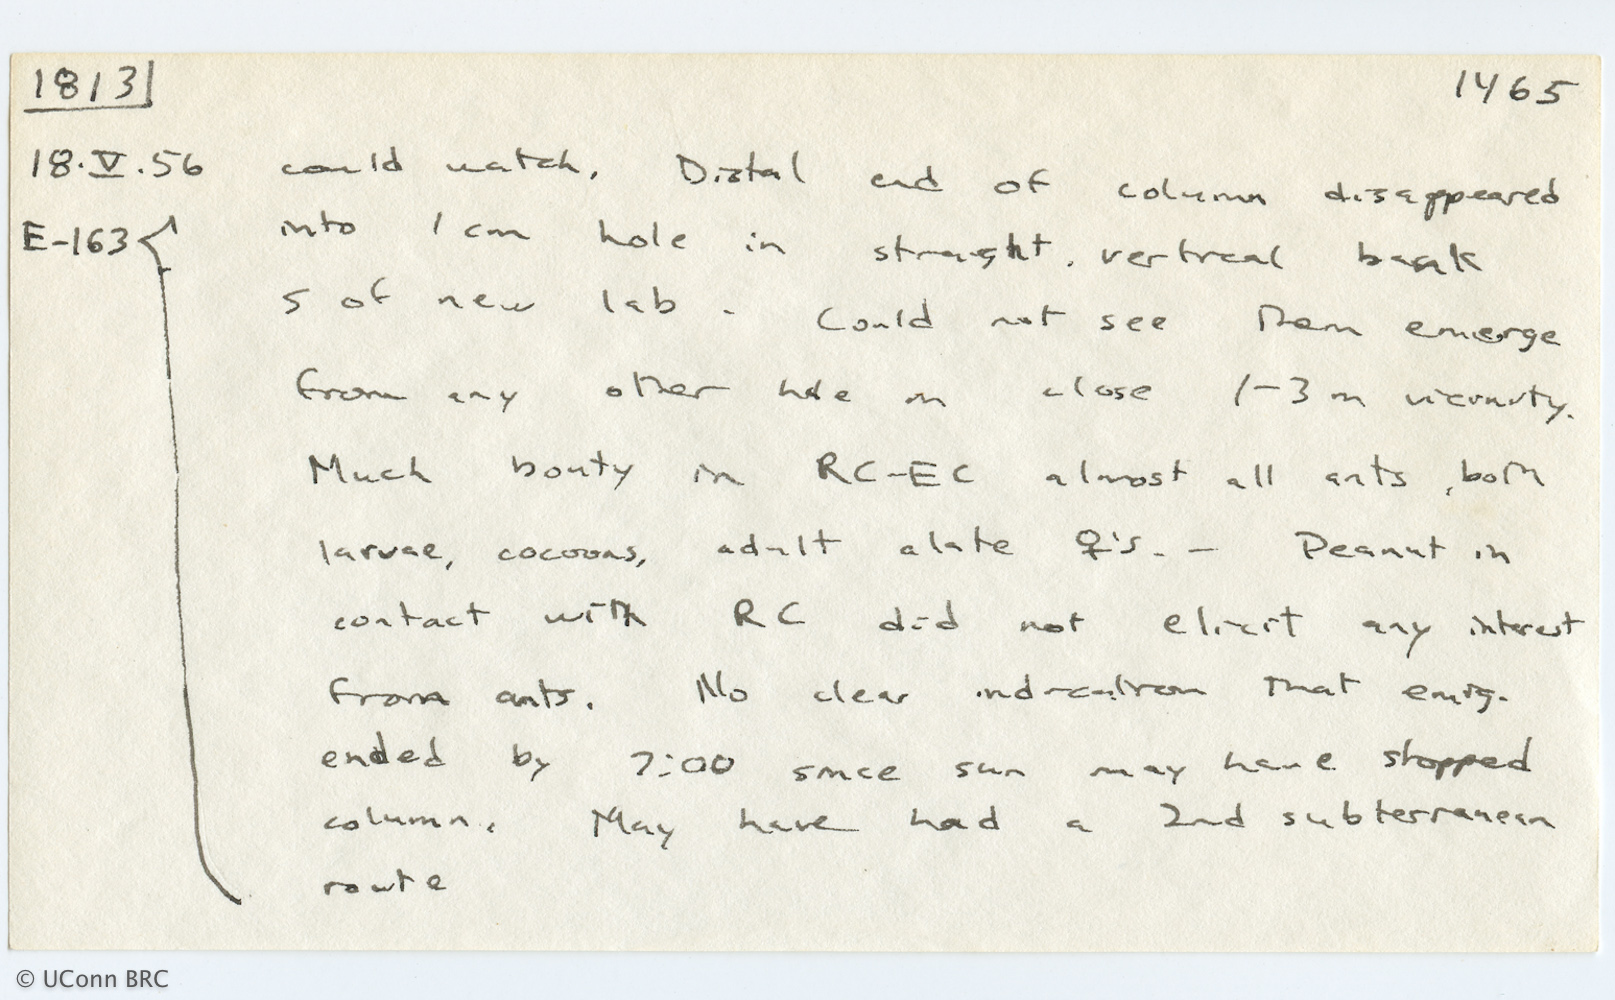 1813 1465
18.V.56 could watch. Distal end of column disappeared
E-163 into 1 cm hole in straight, vertical bank
S of new lab. Could not see them emerge
from any other hole in close 1-3 m vicinity.
Much bouty in RC-EC almost all ants, both
larvae, cocoons, adult alate ♀'s. - Peanut in
contact with RC did not elicit any interest
from ants. No clear indication that emig.
ended by 7:00 since sun may have stopped
column. May have had a 2nd subterranean
route
© UConn BRC